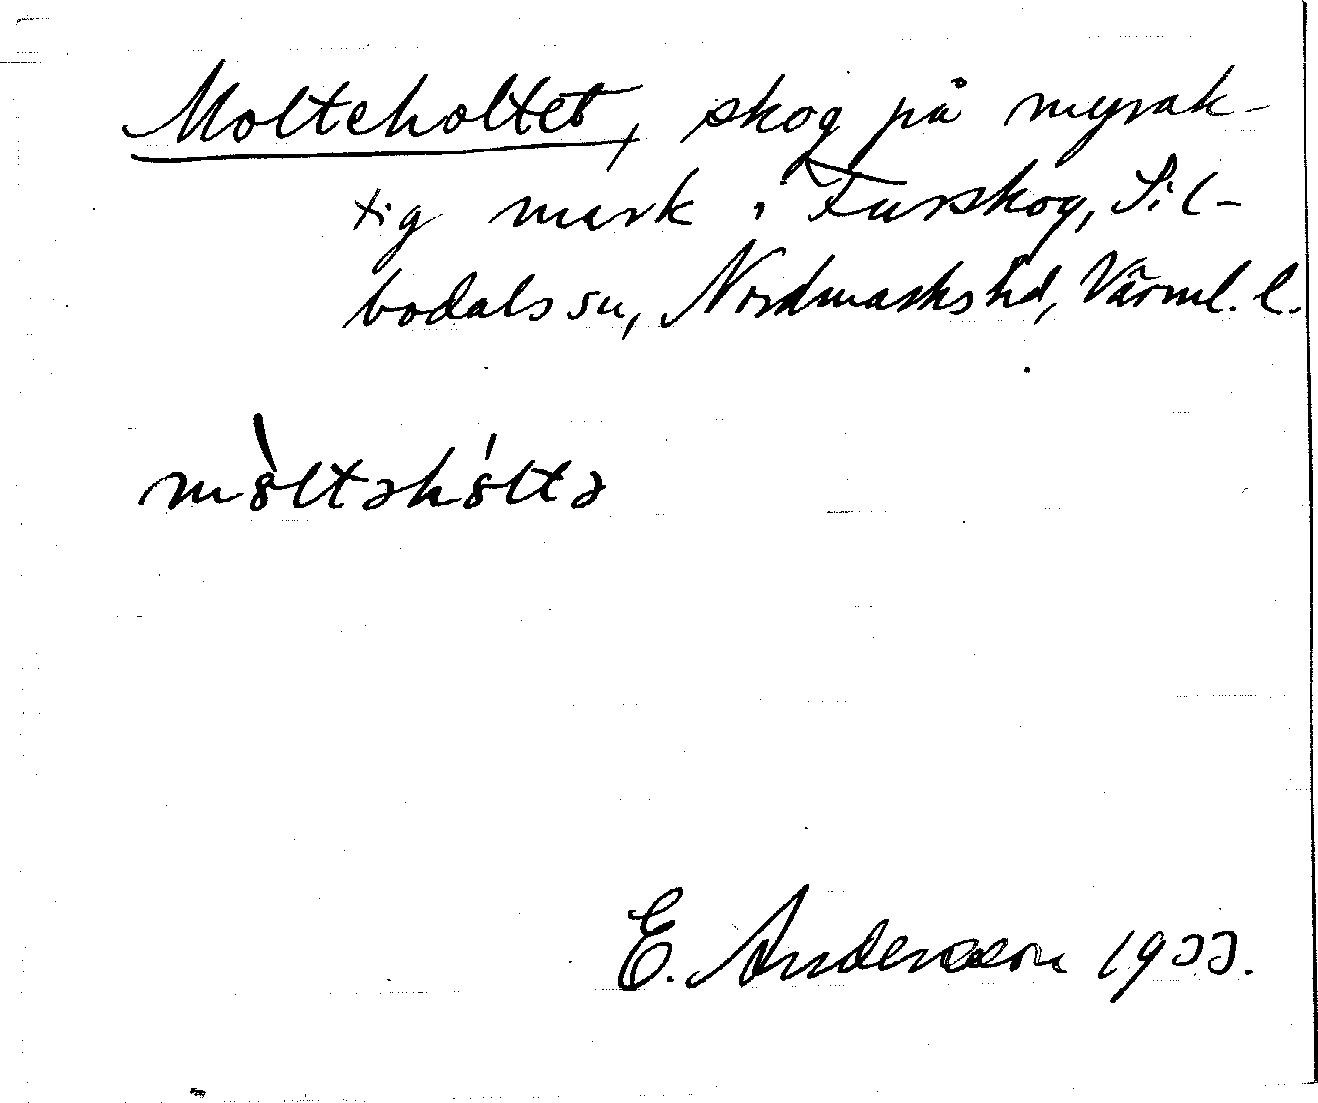 Molteholtet, skog på myrak-
tig mark i Furskog, Sil-
bodals sn, Nordmarks hd, Värml. l.
mòltəhóltə
E. Andersson 1933.